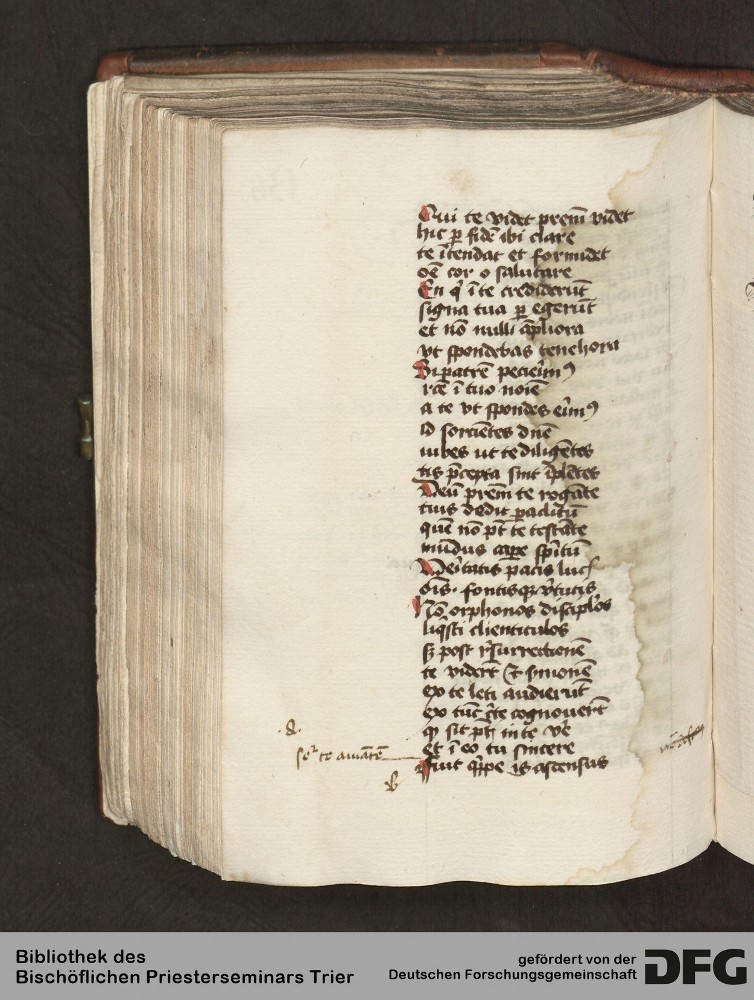 Qui te videt prem̄ videt
hic p̲ fidē ibi clare
te ītendat et formidet
oē cor o salutare
En q̄ ī te crediderūt
signa tua p̲ egerūt
et nō nulli āpliora
vt spondebas tenehora
Si patrē pecieim⁹
rcē ī tuo noīe
a te vt spondes eim⁹
sorciētes dn̄e
iubes ut te diligētes
tis p̄cepta sint īplētes
Deū prēm te rogāte
tuus dedit paclitū
quē nō pt̄ te testāte
mūdus cape spīritū
Veītatis pacis luc
oīs· fontisqꝫ v̄tutis
Nō orphonos discip̄los
liq̄sti clienticulos
sꝫ post r̄surrectionē
te viderēt et vnionē
ex te leti audierūt
ex tūc cognouerūt
qꝫ sit in te
et ī eo tu sincere
Fuit q̄ppe is ascensus
·a·
te amātē
b
Bibliothek des
Bischöflichen Priesterseminars Trier
gefördert von der
Deutschen Forschungsgemeinschaft
DFG